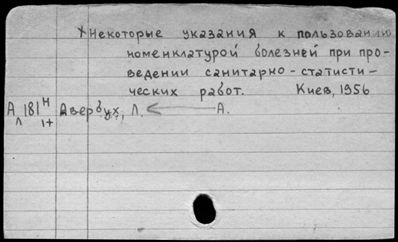 Некоторые указания к пользованию
номенклатурой болезней при про-
ведении санитарно-статисти-
ческих работ. Киев, 1956
А 181 Н Авербух, Л. ← А.
Л 1+